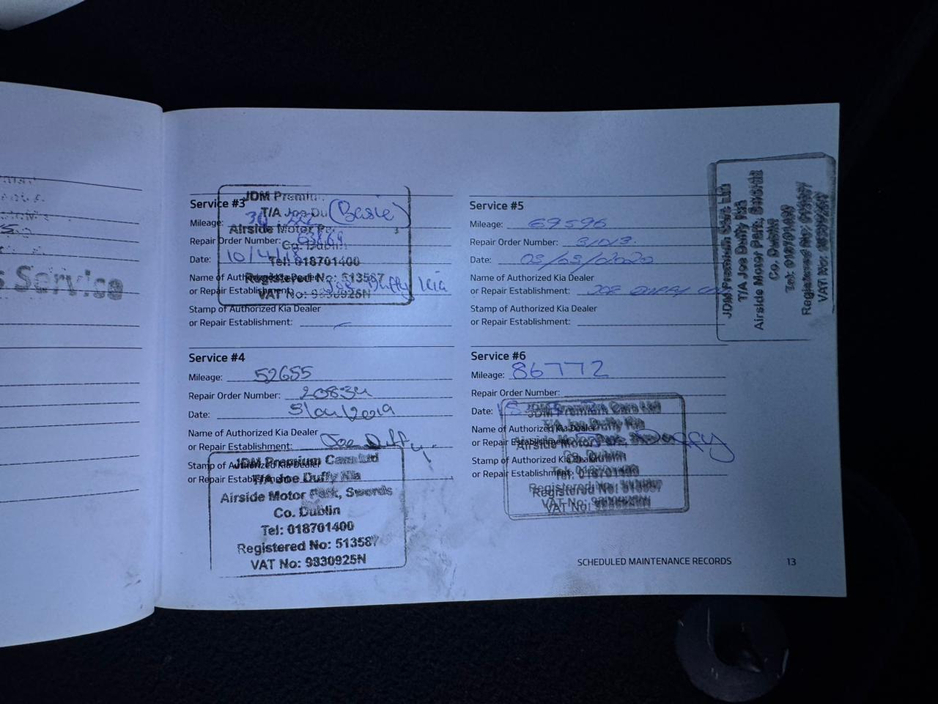 s Service
Service #3
Mileage: (Basic)
Repair Order Number:
Date: 10/4/18
Name of Authorized Kia Dealer
or Repair Establishment: Joe Duffy Kia
Stamp of Authorized Kia Dealer
or Repair Establishment:
JDM Premium
T/A Joe Du
Airside Motor Pa
Co. Dublin
Tel: 018701400
Registered No: 513587
VAT No: 9830925N
Service #4
Mileage: 52655
Repair Order Number: 20834
Date: 5/04/2019
Name of Authorized Kia Dealer
or Repair Establishment: Joe Duffy
Stamp of Authorized Kia Dealer
or Repair Establishment:
JDM Premium Cars Ltd
T/A Joe Duffy Kia
Airside Motor Park, Swords
Co. Dublin
Tel: 018701400
Registered No: 513587
VAT No: 9830925N
Service #5
Mileage: 69596
Repair Order Number:
Date: 03/03/2020
Name of Authorized Kia Dealer
or Repair Establishment: JOE DUFFY
Stamp of Authorized Kia Dealer
or Repair Establishment:
JDM Premium Cars Ltd
T/A Joe Duffy Kia
Airside Motor Park, Swords
Co. Dublin
Tel: 018701400
Registered No: 513587
VAT No:
Service #6
Mileage: 86772
Repair Order Number:
Date:
Name of Authorized Kia Dealer
or Repair Establishment: Duffy
Stamp of Authorized Kia Dealer
or Repair Establishment:
JDM Premium Cars Ltd
T/A Joe Duffy Kia
Airside Motor Park, Swords
Co. Dublin
Tel: 018701400
Registered No: 513587
VAT No:
SCHEDULED MAINTENANCE RECORDS 13